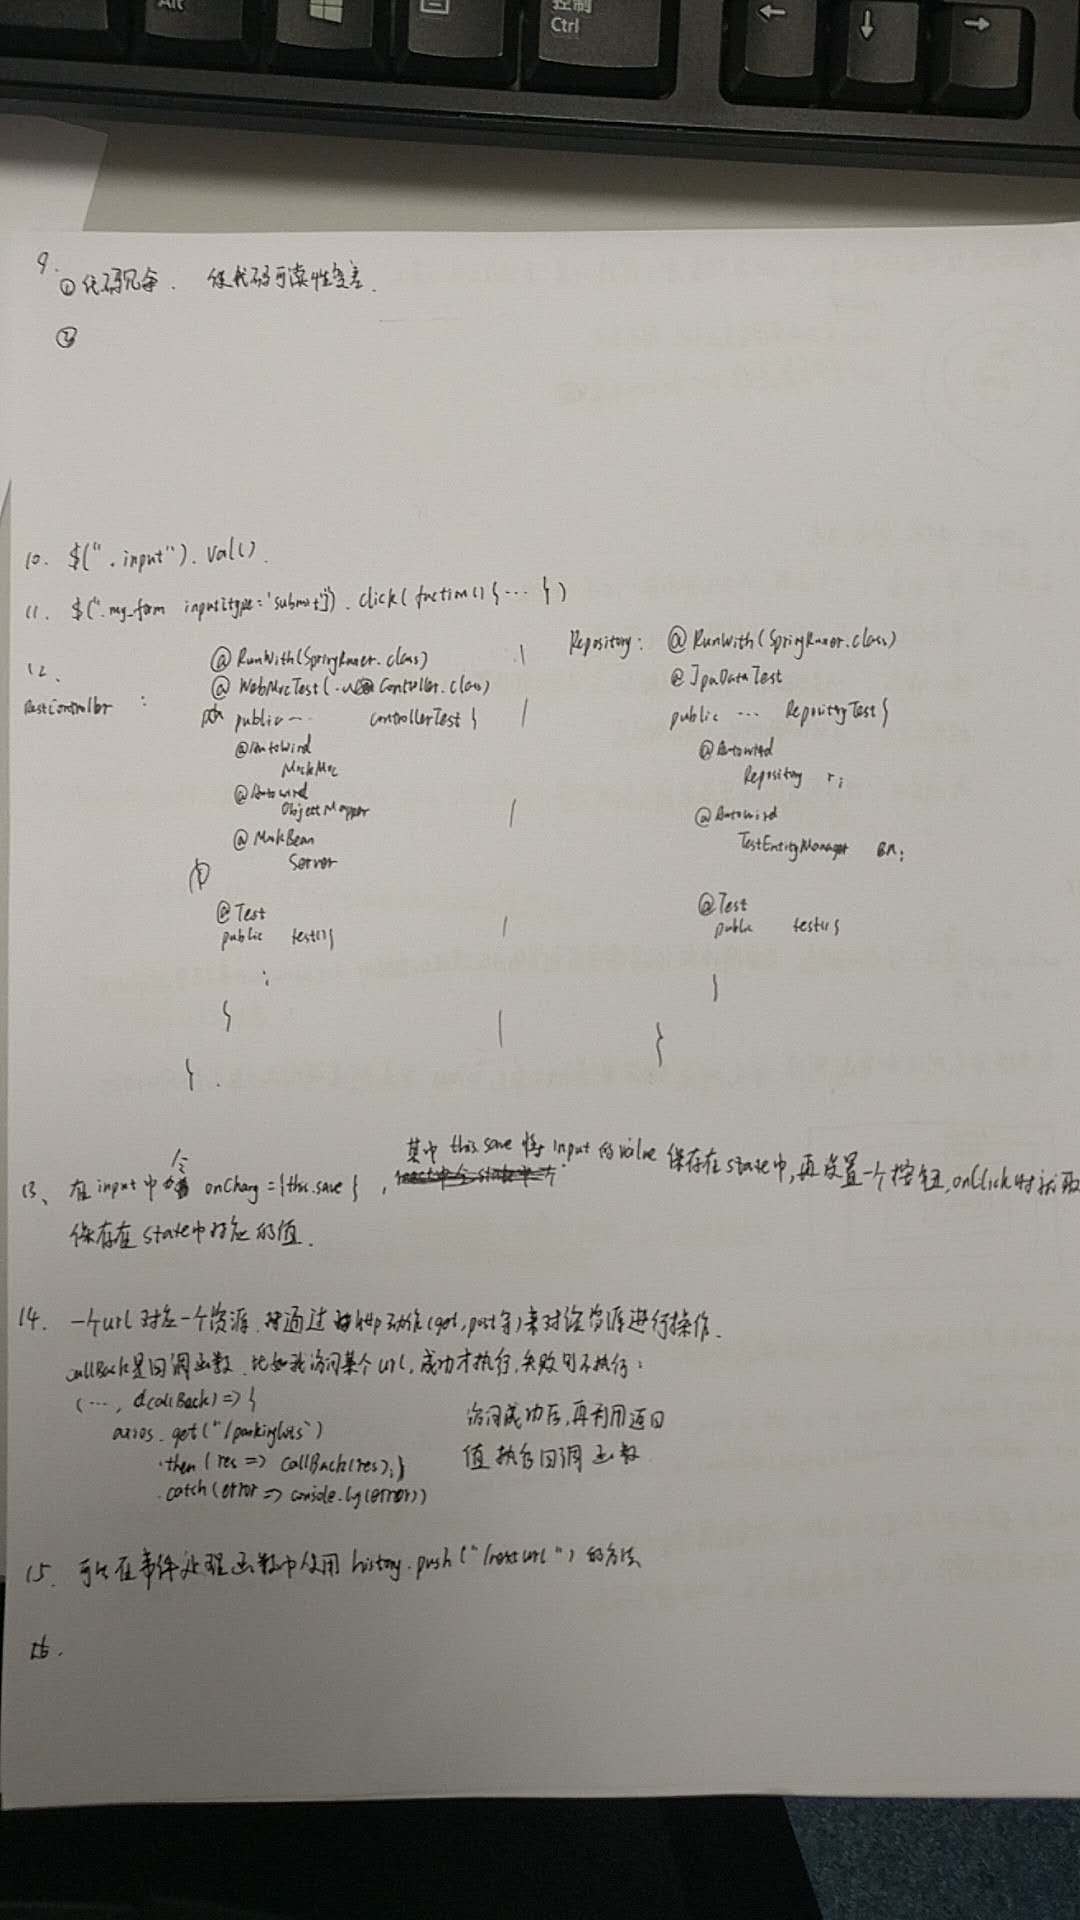 Alt
控制
Ctrl
9.
① 代码冗余. 使代码可读性变差.
②
10. $(".input").val().
11. $(".my_form input[type='submit']").click(function(){ ... })
12.
RestController :
@RunWith(SpringRunner.class)
@WebMvcTest( Controller.class)
public ... ControllerTest {
@Autowird
MockMvc
@Autowird
ObjectMapper
@MockBean
Server
@Test
public test(){
:
}
}.
Repository: @RunWith(SpringRunner.class)
@JpaDataTest
public ... RepositoryTest {
@Autowird
Repository r;
@Autowird
TestEntityManager em;
@Test
public test(){
}
}
13、在input中 onChang={this.save}, 其中this.save 将input的value保存在state中,再设置一个按钮,onClick时获取
保存在state中对应的值.
14. 一个url对应一个资源. 通过http动作(get,post等)来对该资源进行操作.
callBack是回调函数. 比如我访问某个url, 成功才执行,失败则不执行:
(..., callBack) => {
axios.get("/parkinglots")
.then(res => callBack(res);}
.catch(error => console.log(error))
访问成功后,再利用返回
值执行回调函数
15. 可以在事件处理函数中使用 history.push("/nexturl") 的方法
16.